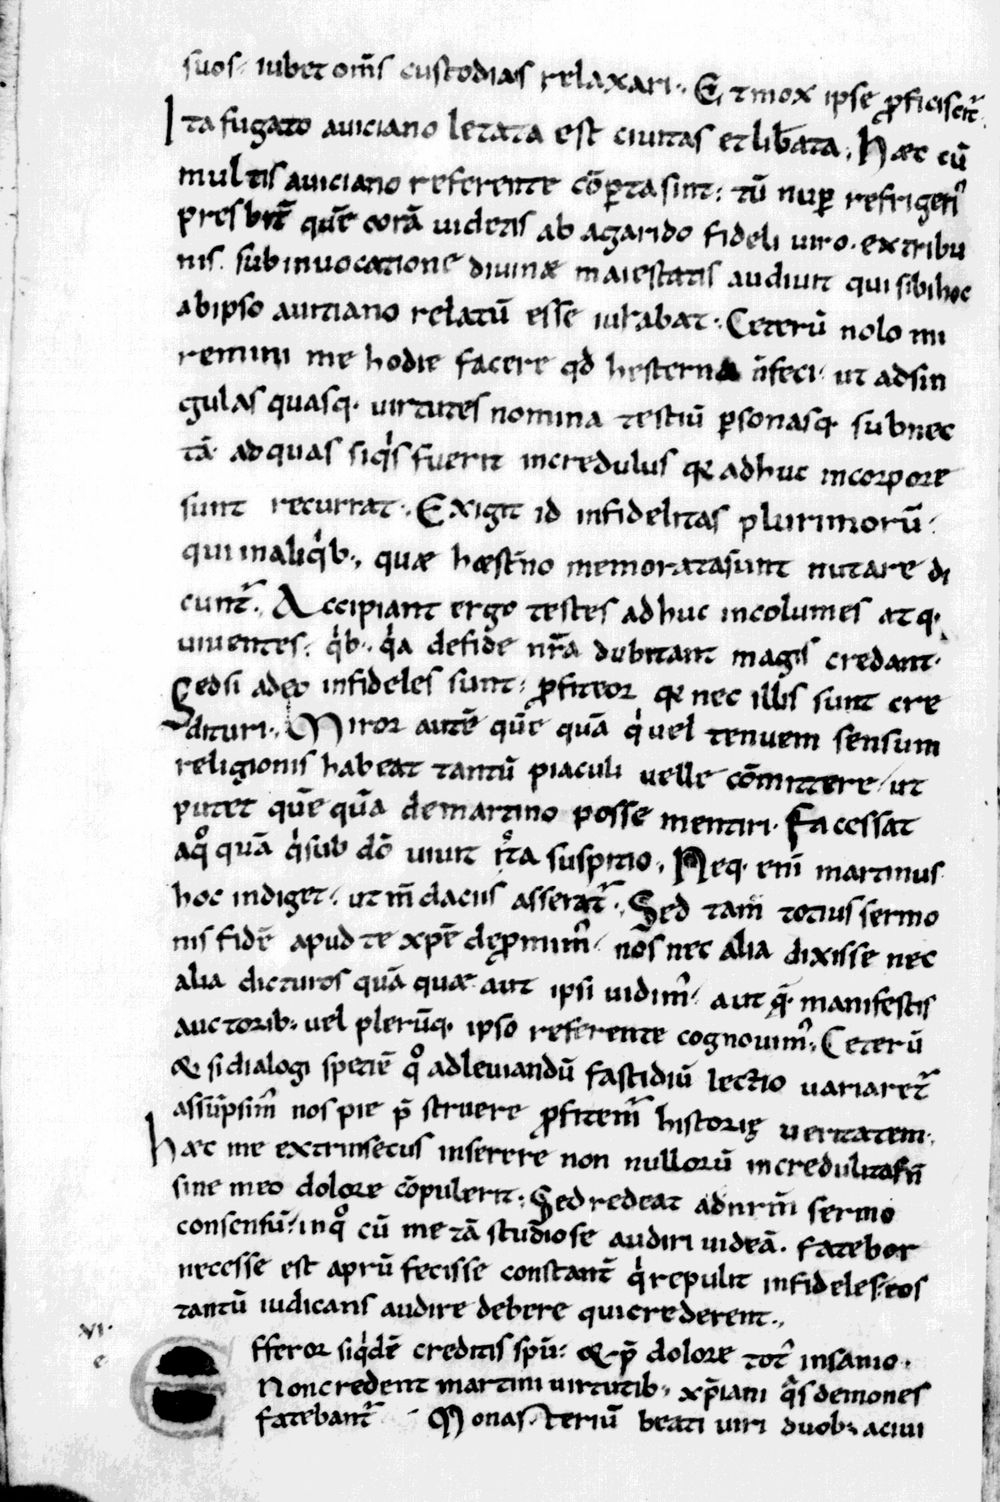 suos· iubet om̄s custodias relaxari· Et mox ipse ꝓficiscit᷑·
Ita fugato auiciano letata est ciuitas et libata· Hæc cū
multis auiciano referente cōꝑta sint· tū nuꝑ refrigeri᷑
presbit̄ quē corā uidetis ab agarido fideli uiro· ex tribu
nis· sub inuocatione diuinæ maiestatis audiuit qui sibi hoc
ab ipso auitiano relatū esse iurabat· Ceterū nolo mi
remini me hodie facere qd hesterna n̄ feci· ut ad sin
gulas quasq· uirtutes nomina testiū ꝑsonasq· subnec
tā· ad quas siq̇s fuerit incredulus qꝛ adhuc in corpore
sunt recurrat· Exigit id infidelitas plurimorū·
qui in aliq̇b·, quæ hæst̄no memorata sunt nutare di
cunt᷑·, Accipiant ergo testes adhuc incolumes atq·
uiuentes· q̇b· q̇a de fide nr̄a dubitant magis credant·
Sed si adeo infideles sunt· ꝓfiteor qꝛ nec illis sunt cre
dituri·, Miror autē quē quā q̇ uel tenuem sensum
religionis habeat tantū piaculi uelle cōmittere· ut
putet quē quā de martino posse mentiri· Facessat
a qͦ quā q̇ sub dō uiuit iͭa suspitio·, Neq· enī martinus
hoc indiget· ut m̄daciis asserat᷑· Sed tam̄ totius sermo
nis fidē apud te xp̄e deꝓmim᷒· nos nec alia dixisse nec
alia dicturos quā quæ aut ipsi uidim᷒· aut q̄ manifestis
auctorib· uel plerūq· ipso referente cognouim᷒· Ceterū
& si dialogi spetiē qͦ ad leuiandū fastidiū lectio uariaret᷑
assūpsim᷒ nos pie p̄ struere ꝓfitem᷑ historię ueritatem·,
Hæc me extrinsecus inserere non nullorū incredulitas n̄
sine meo dolore cōpulerit· Sed redeat ad nrm̄ sermo
consentū· in qͦ cū me tā studiose audiri uideā· fatebor
necesse est aprū fecisse constant̄ q̇ repulit infideles· eos
tantū iudicans audire debere qui crederent·,
XI·
e
Efferor siq̇dē creditis spū· & p̄ dolore tot᷒ insanio·
Non credent martini uirtutib· xp̄iani q̄s demones
fatebant᷑ Monasteriū beati uiri duob· a ciui